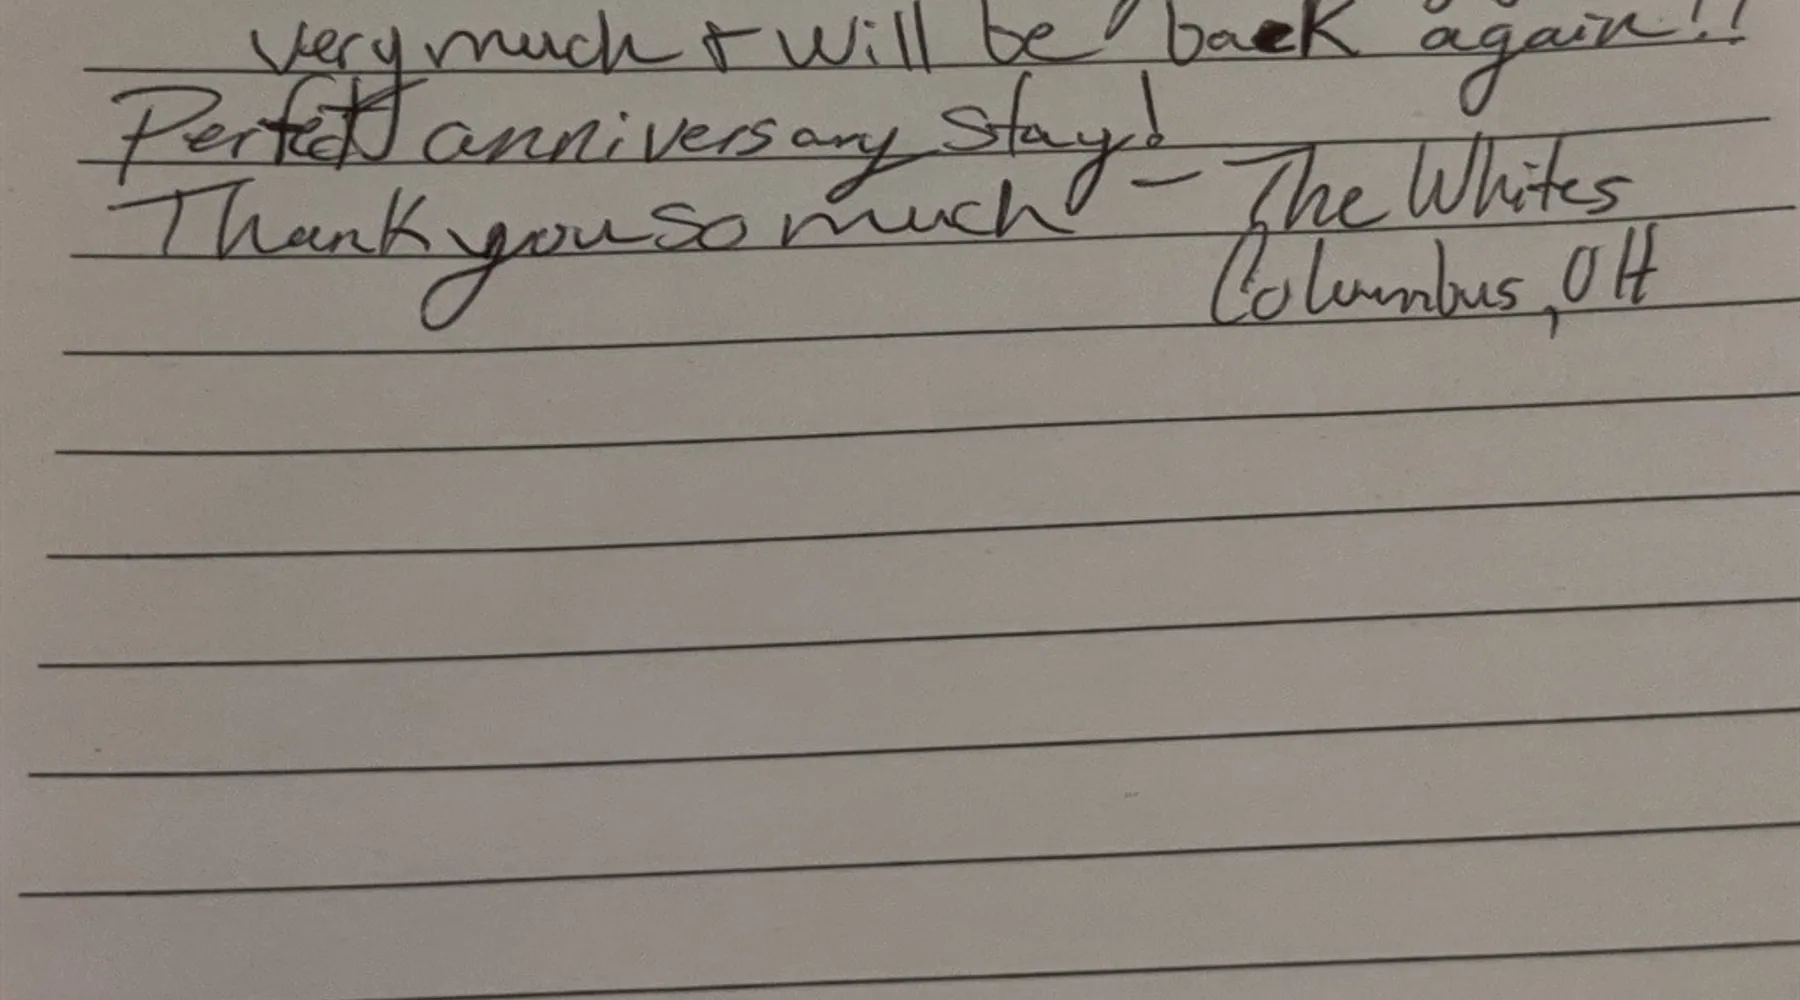 very much + will be back again!!
Perfect anniversary stay!
Thank you so much - The Whites
Columbus, OH